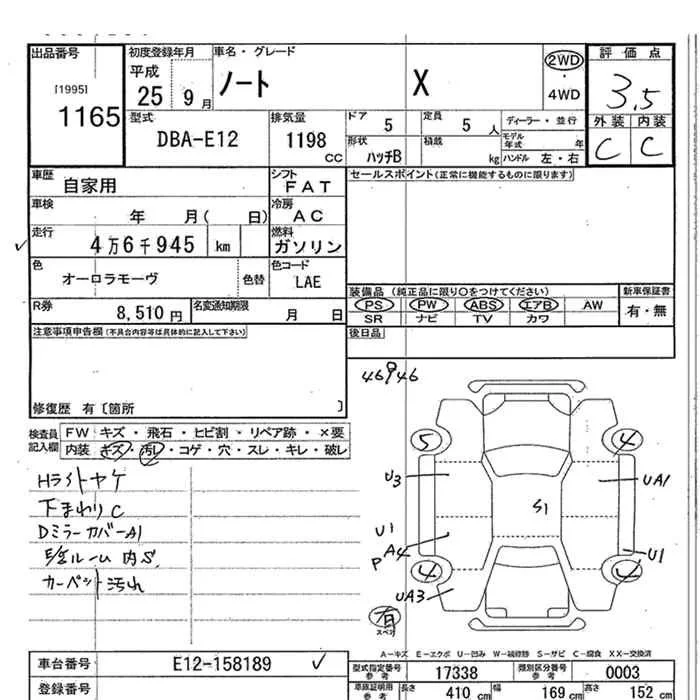 出品番号 初度登録年月 車名・グレード 評価点
[1995] 平成 ノート X 2WD
1165 25 9月 ・ 4WD 3.5
型式 排気量 ドア 定員 ディーラー・並行 外装 内装
DBA-E12 1198 cc 5 5人 モデル年式 年 C C
形状 積載 ハンドル 左・右
ハッチB kg
車歴 自家用 シフト FAT セールスポイント(正常に機能するものに限ります)
車検 年 月( 日) 冷房 AC
走行 4万6千945 km 燃料 ガソリン
色 オーロラモーヴ 色替 色コード LAE
装備品(純正品に限り〇をつけてください) 新車保証書
R券 8,510円 名変通知期限 月 日 PS PW ABS エアB AW 有・無
SR ナビ TV カワ
注意事項申告欄(不具合内容等は具体的に記入して下さい) 後日品
修復歴 有〔箇所 〕
46 946
検査員記入欄 FW キズ・飛石・ヒビ割・リペア跡・×要
内装 キズ・汚レ・コゲ・穴・スレ・キレ・破レ
Hライトヤケ
下まわりC
DミラーカバーA1
ルーム内S
カーペット汚れ
5 4
U3 UA1
S1
U1
A4 U1
P
4 4
UA3
有
スペア
A―キズ E―エクボ U―凹み W―補修跡 S―サビ C―腐食 XX―交換済
車台番号 E12-158189 型式指定番号 参考 17338 類別区分番号 参考 0003
登録番号 車庫証明用 参考 長さ 410 cm 幅 169 cm 高さ 152 cm